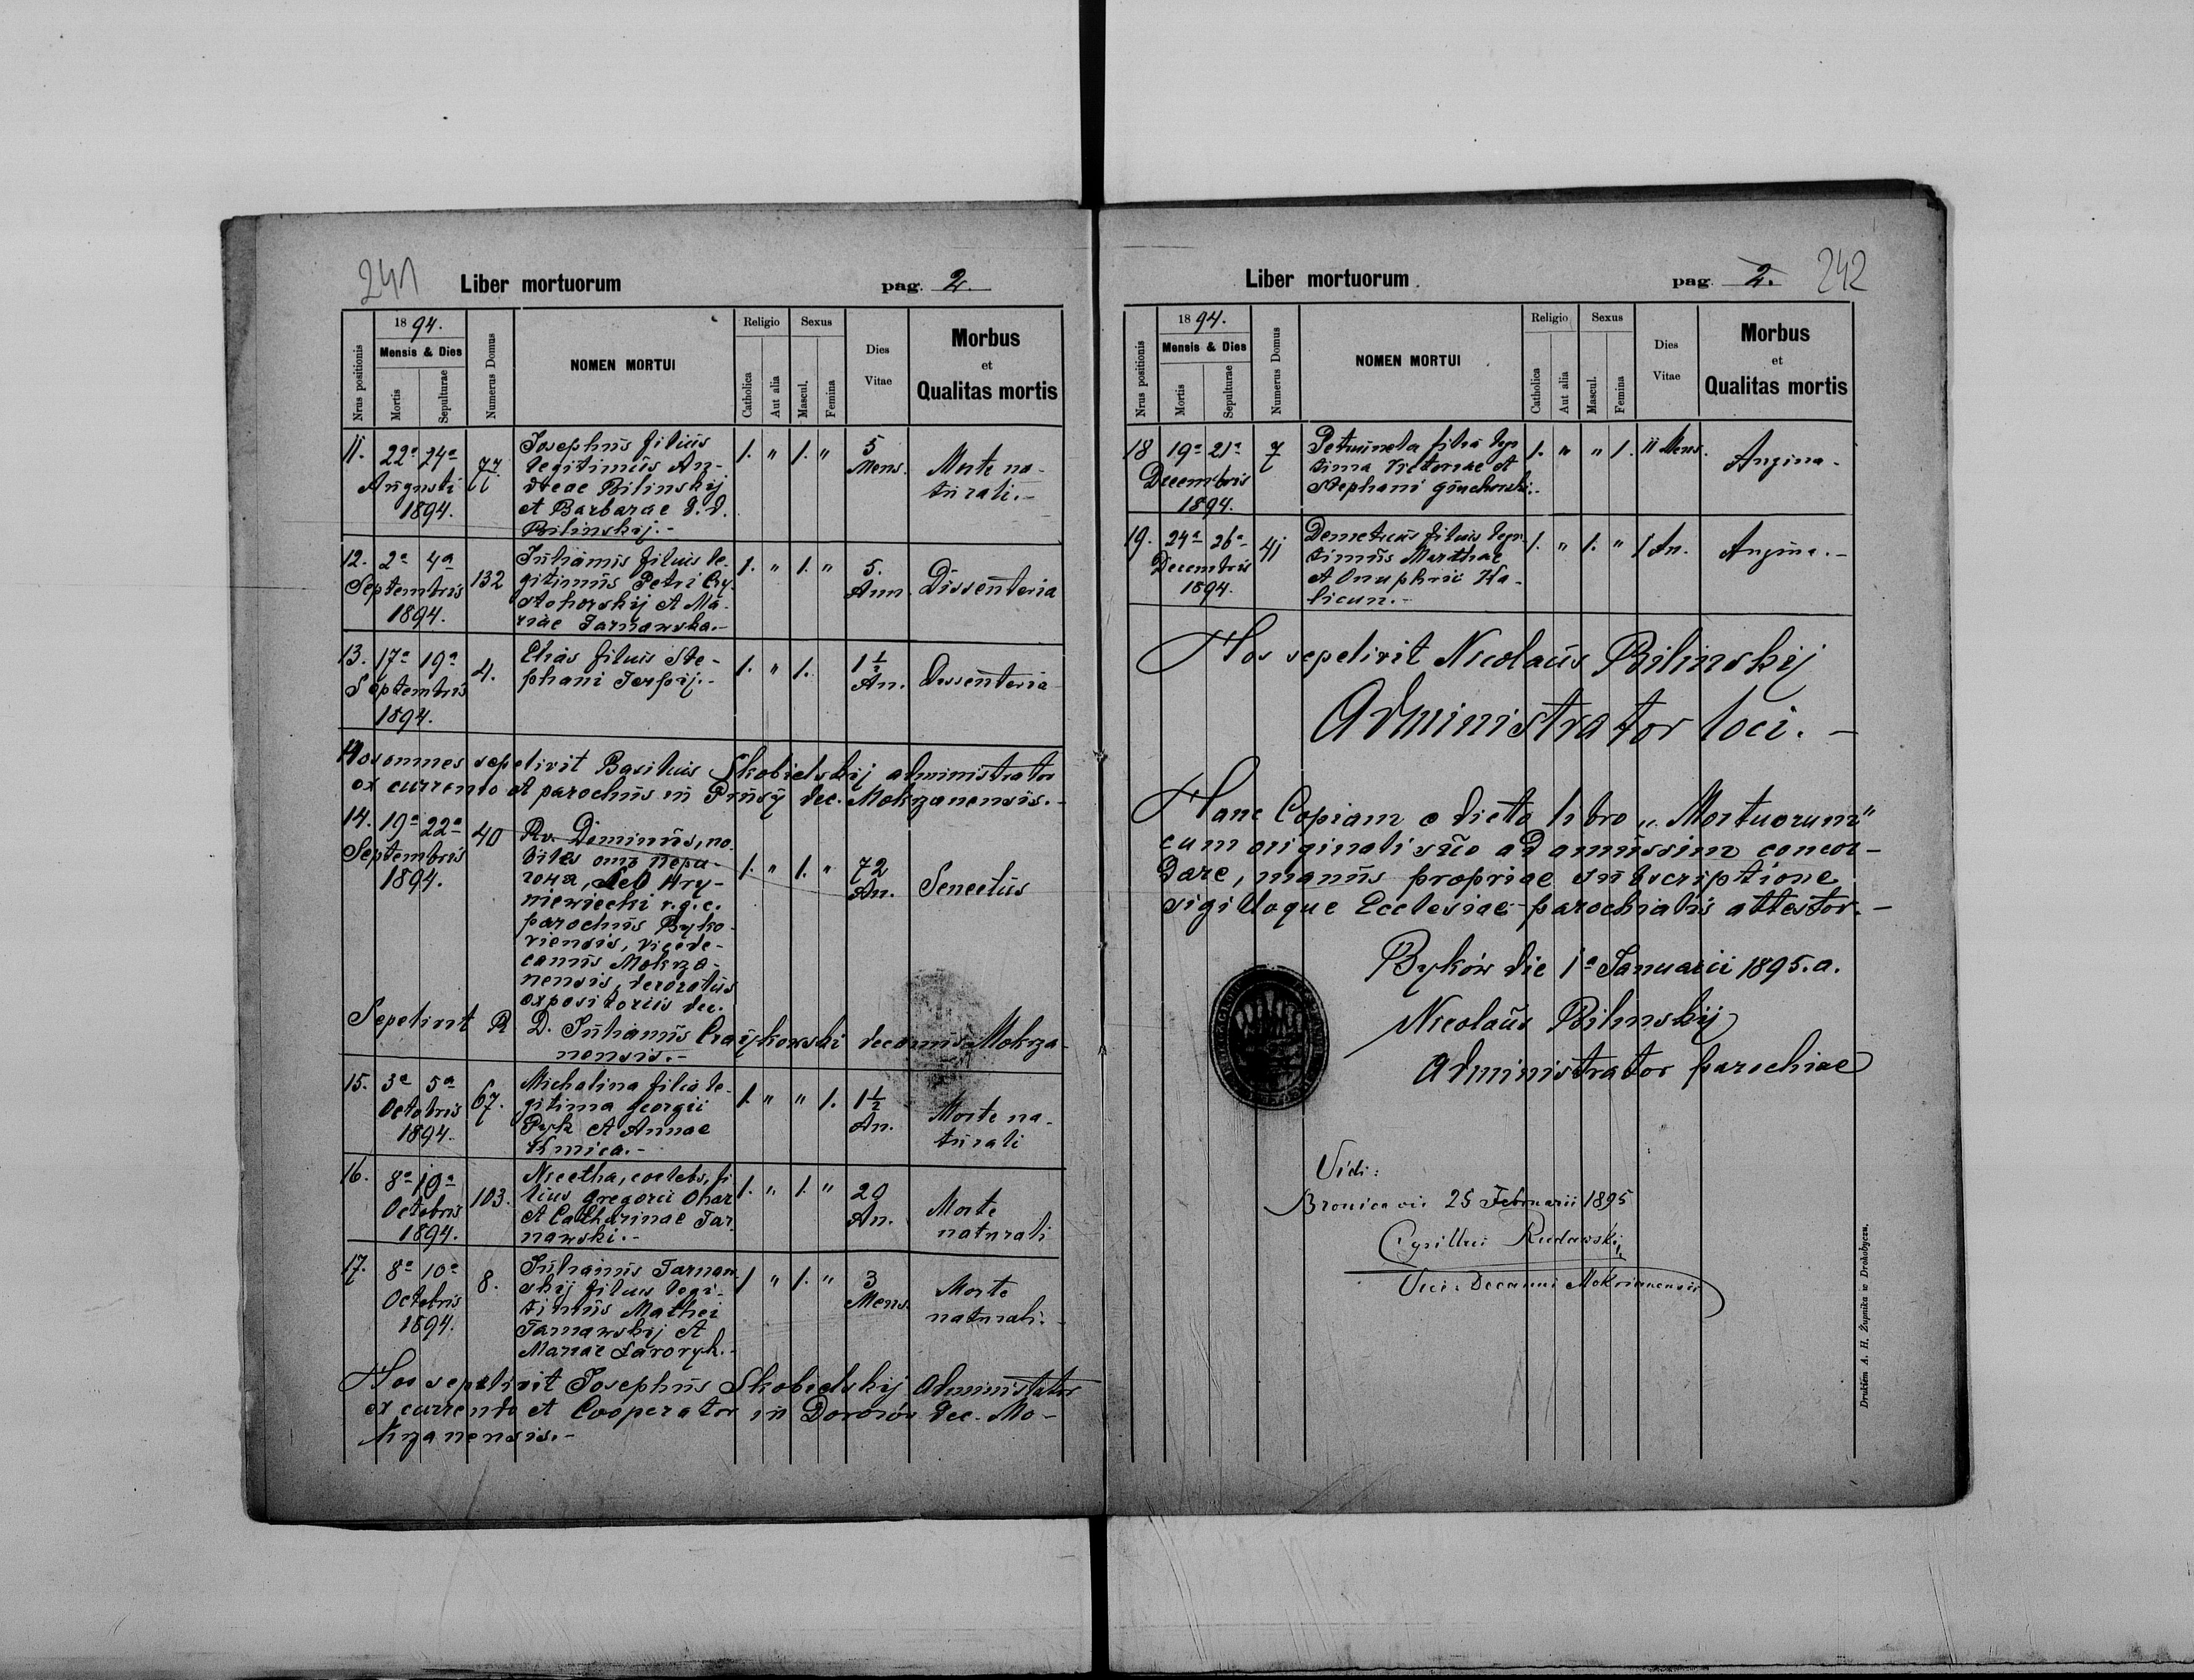 241
Liber mortuorum pag. 2.
Nrus positionis
1894.
Mensis & Dies
Mortis
Sepulturae
Numerus Domus
NOMEN MORTUI
Religio
Catholica
Aut alia
Sexus
Mascul.
Femina
Dies
Vitae
Morbus
et
Qualitas mortis
11. 22a 24a
Augusti
1894.
77
Josephus filius
legitimus An-
dreae Bilinskij
et Barbarae
Bilinskij.-
1. " 1. "
5
Mens.
Morte na-
turali.-
12. 2a 4a
Septembris
1894.
132
Julianus filius le-
gitimus Petri
et Ma-
riae Tarnawska.-
1. " 1. "
5.
Ann.
Dissenteria
13. 17a 19a
Septembris
1894.
4.
Elias filius Ste-
phani
1. " 1.
1 1/2
An.
Dissenteria
Hos omnes sepelivit Basilius Skobielskij administrator
ex currendo et parochus in Prusy dec. Mokrzanensis.-
14. 19a 22a
Septembris
1894.
40
Dominus, no-
biles
Leo Hry-
niewiecki r.g.c.
parochus Byko-
viensis, vicede-
canus Mokrza-
nensis, decoratus
expositoriis dec.
1. " 1. "
72
An.
Senectus
Sepelivit R. D. Julianus Czajkowski decanus Mokrza-
nensis.-
15. 3a 5a
Octobris
1894.
67.
Michalina filia le-
gitima Georgii
Pyk et Annae
Kmica.-
1. " " 1.
1 1/2
An.
Morte na-
turali
16. 8a 10a
Octobris
1894.
103.
Nicetha, coelebs, fi-
lius Gregorii
et Catharinae Tar-
nawski.-
1. " 1. "
20
An.
Morte
naturali
17. 8a 10a
Octobris
1894.
8.
Julianus Tarnaw-
skij filius legi-
timus Mathei
Tarnawskij et
Mariae Laroryk.-
1 " 1. "
3
Mens.
Morte
naturali.-
Hos sepelivit Josephus Skobielskij Administrator
ex currendo et Cooperator in dec. Mo-
krzanensis.-
242
Liber mortuorum pag. 2.
Nrus positionis
1894.
Mensis & Dies
Mortis
Sepulturae
Numerus Domus
NOMEN MORTUI
Religio
Catholica
Aut alia
Sexus
Mascul.
Femina
Dies
Vitae
Morbus
et
Qualitas mortis
18 19a 21a
Decembris
1894.
7
filia legi-
tima Victoriae et
Stephani
1. " " 1.
11 Mens.
Angina.
19. 24a 26a
Decembris
1894.
41
Demetrius filius legi-
timus Marthae
et Onuphrii Ha-
licun.-
1. " 1. "
1 An.
Angina.-
Hos sepelivit Nicolaus Bilinskij
Administrator loci.-
Hanc Copiam e dicto libro „Mortuorum"
cum originali suo ad amussim concor-
dare, manus propriae subscriptione
sigilloque Ecclesiae parochialis attestor.-
Byków die 1a Januarii 1895.a.
Nicolaus Bilinskij
Administrator parochiae
Vidi:
Bronica die 25 Februarii 1895
Cyrillus Rudawski
Vice-Decanus Mokrianensis
Drukiem A. H. Żupnika w Drohobyczu.